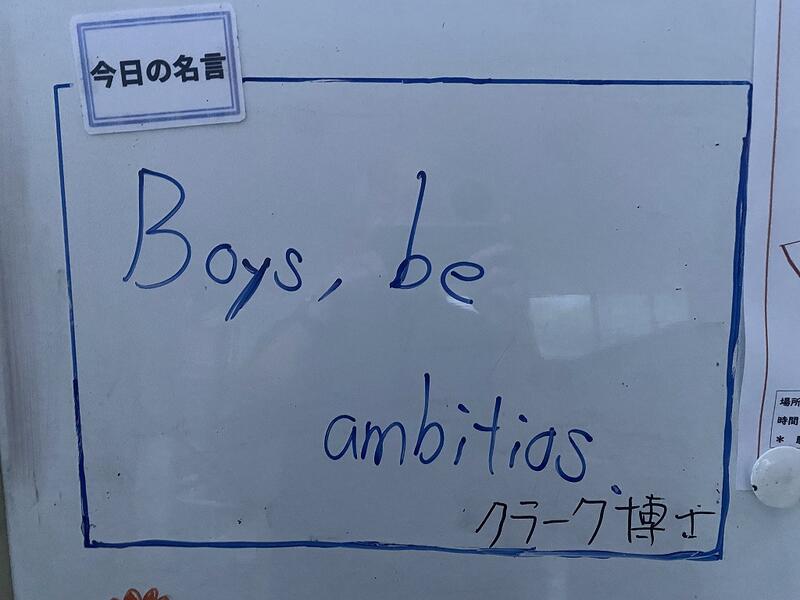 今日の名言
Boys, be
ambitios.
クラーク博士
場所
時間
＊